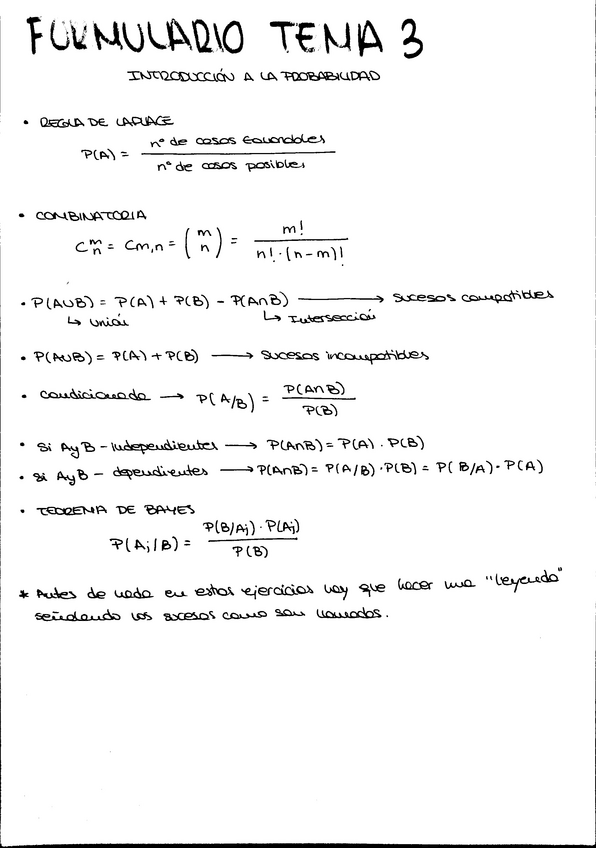 FORMULARIO TEMA 3
INTRODUCCIÓN A LA PROBABILIDAD
• REGLA DE LAPLACE
P(A) = nº de casos favorables / nº de casos posibles
• COMBINATORIA
C^m_n = Cm,n = (m n) = m! / n!·(n-m)!
• P(A∪B) = P(A) + P(B) - P(A∩B) ⟶ Sucesos compatibles
↳ Unión ↳ Intersección
• P(A∪B) = P(A) + P(B) ⟶ Sucesos incompatibles
• Condicionada ⟶ P(A/B) = P(A∩B) / P(B)
• Si A y B - independientes ⟶ P(A∩B) = P(A) · P(B)
• Si A y B - dependientes ⟶ P(A∩B) = P(A/B)·P(B) = P(B/A)·P(A)
• TEOREMA DE BAYES
P(Aj/B) = P(B/Aj)·P(Aj) / P(B)
* Antes de nada en estos ejercicios hay que hacer una "leyenda"
señalando los sucesos como son llamados.